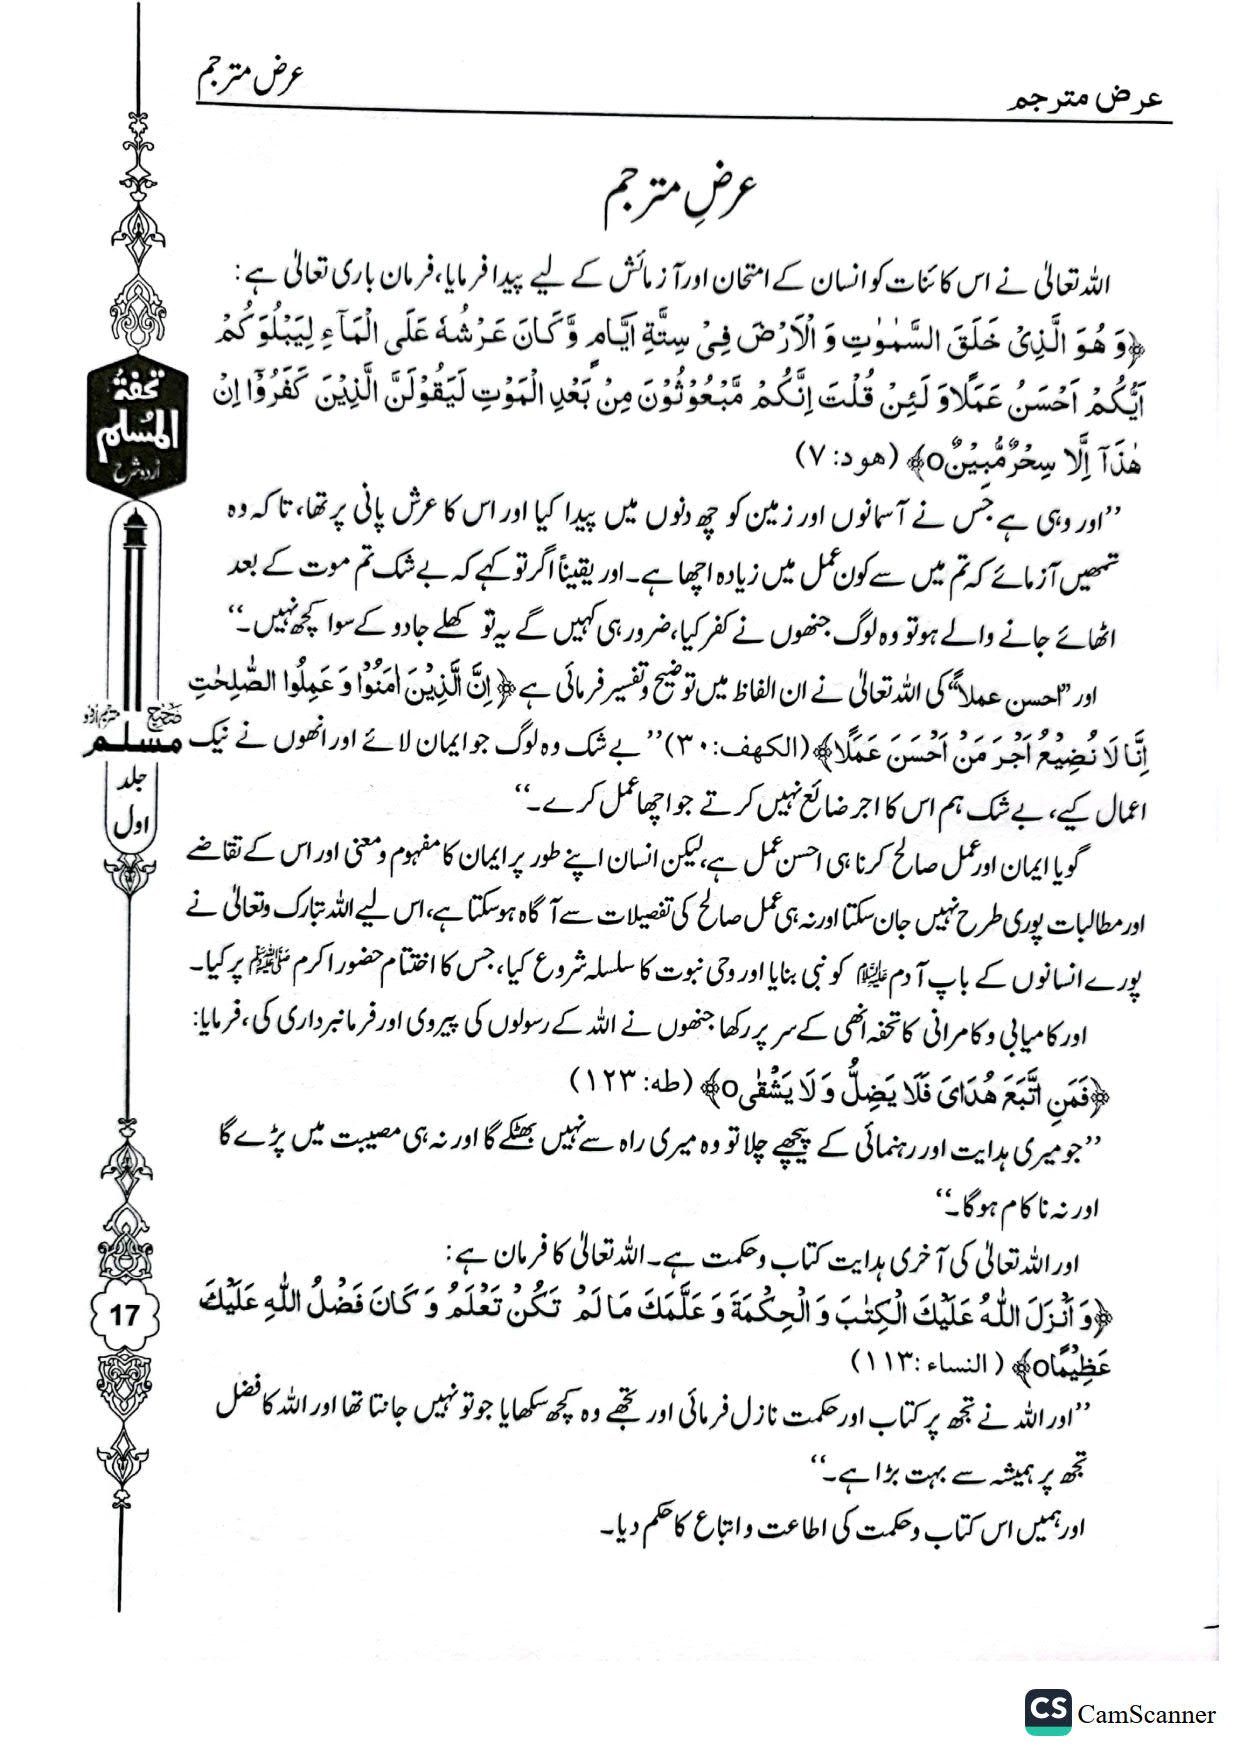 عرض مترجم
عرض مترجم
عرضِ مترجم
اللہ تعالیٰ نے اس کائنات کو انسان کے امتحان اور آزمائش کے لیے پیدا فرمایا، فرمان باری تعالیٰ ہے:
﴿وَ هُوَ الَّذِیْ خَلَقَ السَّمٰوٰتِ وَ الْاَرْضَ فِیْ سِتَّةِ اَیَّامٍ وَّ كَانَ عَرْشُهٗ عَلَی الْمَآءِ لِیَبْلُوَكُمْ
اَیُّكُمْ اَحْسَنُ عَمَلًاوَ لَئِنْ قُلْتَ اِنَّكُمْ مَّبْعُوْثُوْنَ مِنْۢ بَعْدِ الْمَوْتِ لَیَقُوْلَنَّ الَّذِیْنَ كَفَرُوْۤا اِنْ
هٰذَاۤ اِلَّا سِحْرٌ مُّبِیْنٌo﴾ (هود: ٧)
’’اور وہی ہے جس نے آسمانوں اور زمین کو چھ دنوں میں پیدا کیا اور اس کا عرش پانی پر تھا، تاکہ وہ
تمھیں آزمائے کہ تم میں سے کون عمل میں زیادہ اچھا ہے۔ اور یقیناً اگر تو کہے کہ بے شک تم موت کے بعد
اٹھائے جانے والے ہو تو وہ لوگ جنھوں نے کفر کیا، ضرور ہی کہیں گے یہ تو کھلے جادو کے سوا کچھ نہیں۔‘‘
اور ’’احسن عملاً‘‘ کی اللہ تعالیٰ نے ان الفاظ میں توضیح و تفسیر فرمائی ہے ﴿اِنَّ الَّذِیْنَ اٰمَنُوْا وَ عَمِلُوا الصّٰلِحٰتِ
اِنَّا لَا نُضِیْعُ اَجْرَ مَنْ اَحْسَنَ عَمَلًا﴾ (الكهف: ٣٠) ’’بے شک وہ لوگ جو ایمان لائے اور انھوں نے نیک
اعمال کیے، بے شک ہم اس کا اجر ضائع نہیں کرتے جو اچھا عمل کرے۔‘‘
گویا ایمان اور عمل صالح کرنا ہی احسن عمل ہے، لیکن انسان اپنے طور پر ایمان کا مفہوم و معنی اور اس کے تقاضے
اور مطالبات پوری طرح نہیں جان سکتا اور نہ ہی عمل صالح کی تفصیلات سے آگاہ ہوسکتا ہے، اس لیے اللہ تبارک و تعالیٰ نے
پورے انسانوں کے باپ آدم علیہ السلام کو نبی بنایا اور وحی نبوت کا سلسلہ شروع کیا، جس کا اختتام حضور اکرم ﷺ پر کیا۔
اور کامیابی و کامرانی کا تحفہ انھی کے سر پر رکھا جنھوں نے اللہ کے رسولوں کی پیروی اور فرمانبرداری کی، فرمایا:
﴿فَمَنِ اتَّبَعَ هُدَایَ فَلَا یَضِلُّ وَ لَا یَشْقٰیo﴾ (طه: ١٢٣)
’’جو میری ہدایت اور رہنمائی کے پیچھے چلا تو وہ میری راہ سے نہیں بھٹکے گا اور نہ ہی مصیبت میں پڑے گا
اور نہ ناکام ہوگا۔‘‘
اور اللہ تعالیٰ کی آخری ہدایت کتاب و حکمت ہے۔ اللہ تعالیٰ کا فرمان ہے:
﴿وَ اَنْزَلَ اللّٰهُ عَلَیْكَ الْكِتٰبَ وَ الْحِكْمَةَ وَ عَلَّمَكَ مَا لَمْ تَكُنْ تَعْلَمُ وَ كَانَ فَضْلُ اللّٰهِ عَلَیْكَ
عَظِیْمًاo﴾ (النساء: ١١٣)
’’اور اللہ نے تجھ پر کتاب اور حکمت نازل فرمائی اور تجھے وہ کچھ سکھایا جو تو نہیں جانتا تھا اور اللہ کا فضل
تجھ پر ہمیشہ سے بہت بڑا ہے۔‘‘
اور ہمیں اس کتاب و حکمت کی اطاعت و اتباع کا حکم دیا۔
تحفۃ
المسلم
اردو شرح
صحیح
مترجم اردو
مسلم
جلد
اول
17
CS CamScanner